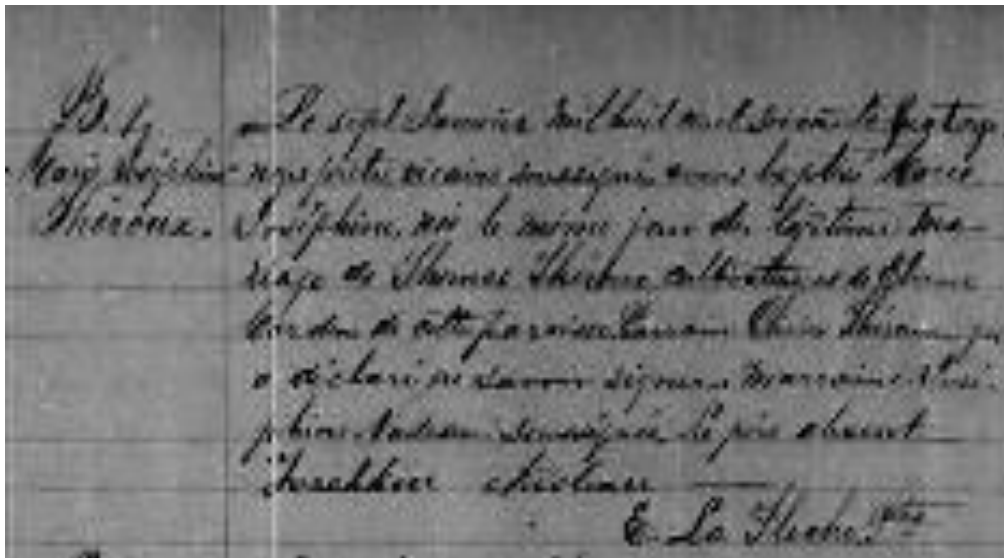 B. 4
Marie Joséphine
Théroux.
Le sept Janvier mil huit cent soixante quatorze
nous prêtre vicaire soussigné avons baptisé Marie
Joséphine, née le même jour du légitime ma-
riage de Thomas Théroux cultivateur et de
de cette paroisse. Parrain Théroux qui
a déclaré ne savoir signer. Marraine José-
phine Nadeau soussignée. Le père absent
Josephine Nadeau
E. La Flèche Ptre